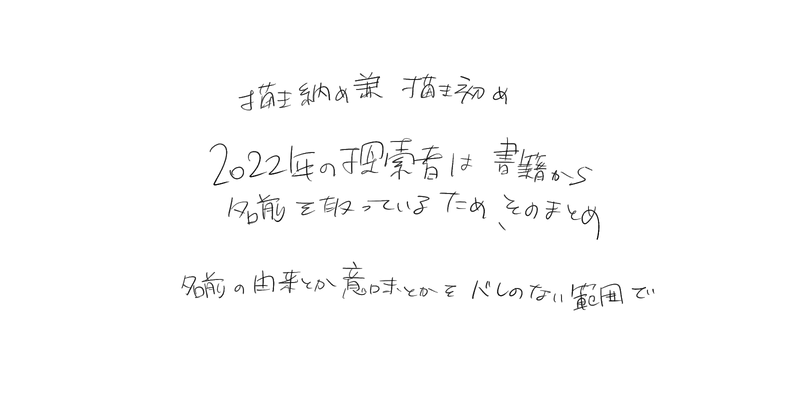 描き納め兼 描き初め
2022年の探索者は 書籍から
名前を取っているため、そのまとめ
名前の由来とか意味とかを バレのない範囲で